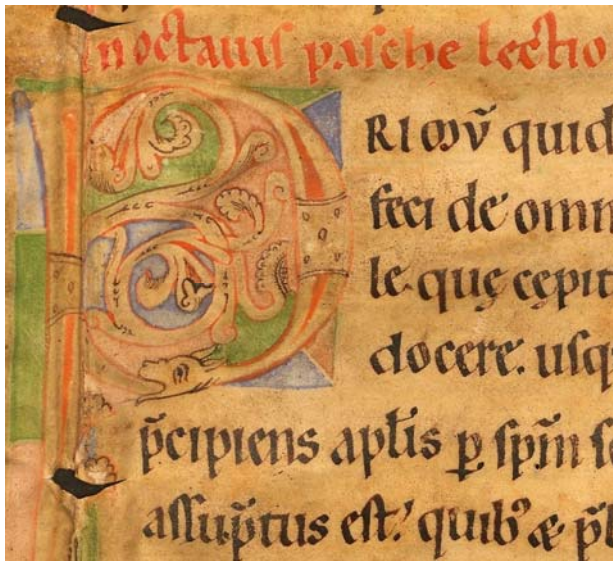 n octauis pasche lectio
PRIMV̄ quid
feci de omn
le quę cepit
docere. usq
p̄cipiens aptl̄is ꝑ spm̄ s
assūptus est.' quib⁹ & p